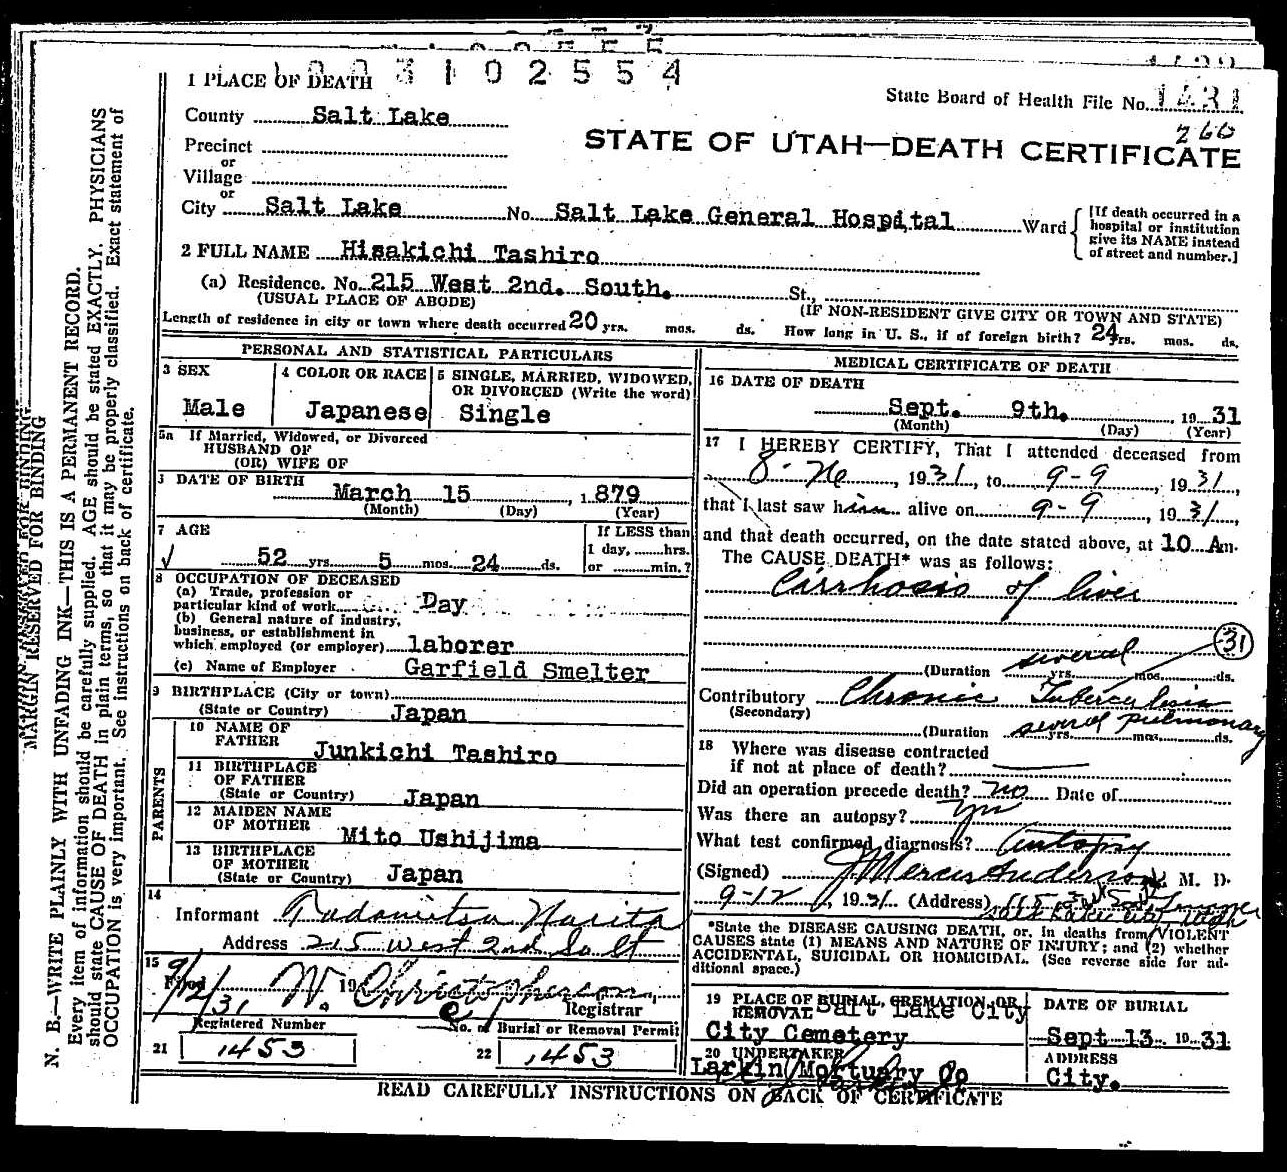 003102554
1 PLACE OF DEATH
State Board of Health File No. 1431
260
County Salt Lake
STATE OF UTAH—DEATH CERTIFICATE
Precinct
or
Village
or
City Salt Lake No. Salt Lake General Hospital Ward
[If death occurred in a
hospital or institution
give its NAME instead
of street and number.]
2 FULL NAME Hisakichi Tashiro
(a) Residence. No. 215 West 2nd. South. St.,
(USUAL PLACE OF ABODE) (IF NON-RESIDENT GIVE CITY OR TOWN AND STATE)
Length of residence in city or town where death occurred 20 yrs. mos. ds. How long in U. S., if of foreign birth? 24 yrs. mos. ds.
PERSONAL AND STATISTICAL PARTICULARS
3 SEX
Male
4 COLOR OR RACE
Japanese
5 SINGLE, MARRIED, WIDOWED,
OR DIVORCED (Write the word)
Single
5a If Married, Widowed, or Divorced
HUSBAND OF
(OR) WIFE OF
DATE OF BIRTH
March 15, 1879
(Month) (Day) (Year)
7 AGE
52 yrs. 5 mos. 24 ds.
If LESS than
1 day, hrs.
or min.?
8 OCCUPATION OF DECEASED
(a) Trade, profession or
particular kind of work Day
(b) General nature of industry,
business, or establishment in
which employed (or employer) laborer
(c) Name of Employer Garfield Smelter
9 BIRTHPLACE (City or town)
(State or Country) Japan
PARENTS
10 NAME OF
FATHER Junkichi Tashiro
11 BIRTHPLACE
OF FATHER
(State or Country) Japan
12 MAIDEN NAME
OF MOTHER Mito Ushijima
13 BIRTHPLACE
OF MOTHER
(State or Country) Japan
14
Informant Tadamitsu Narita
Address 215 West 2nd So St
15
Filed 9/12/31 19 W. Christopherson,
Registrar
Registered Number
21 1453
No. of Burial or Removal Permit
22 1453
MEDICAL CERTIFICATE OF DEATH
16 DATE OF DEATH
Sept. 9th. 1931
(Month) (Day) (Year)
17 I HEREBY CERTIFY, That I attended deceased from
8-26, 1931, to 9-9, 1931,
that I last saw him alive on 9-9, 1931,
and that death occurred, on the date stated above, at 10 Am.
The CAUSE DEATH* was as follows:
Cirrhosis of liver
31
(Duration several yrs. mos. ds.
Contributory Chronic Tuberculosis
(Secondary) pulmonary
(Duration several yrs. mos. ds.
18 Where was disease contracted
if not at place of death?
Did an operation precede death? no Date of
Was there an autopsy? Yes
What test confirmed diagnosis? Autopsy
(Signed) J Mercer Anderson, M. D.
9-12, 1931 (Address)
Salt Lake City, Utah
*State the DISEASE CAUSING DEATH, or, in deaths from VIOLENT
CAUSES state (1) MEANS AND NATURE OF INJURY; and (2) whether
ACCIDENTAL, SUICIDAL OR HOMICIDAL. (See reverse side for ad-
ditional space.)
19 PLACE OF BURIAL, CREMATION, OR
REMOVAL Salt Lake City
City Cemetery
DATE OF BURIAL
Sept 13. 1931
20 UNDERTAKER
Larkin Mortuary Co
ADDRESS
City.
READ CAREFULLY INSTRUCTIONS ON BACK OF CERTIFICATE
MARGIN RESERVED FOR BINDING
N. B.—WRITE PLAINLY WITH UNFADING INK—THIS IS A PERMANENT RECORD.
Every item of information should be carefully supplied. AGE should be stated EXACTLY. PHYSICIANS
should state CAUSE OF DEATH in plain terms, so that it may be properly classified. Exact statement of
OCCUPATION is very important. See instructions on back of certificate.